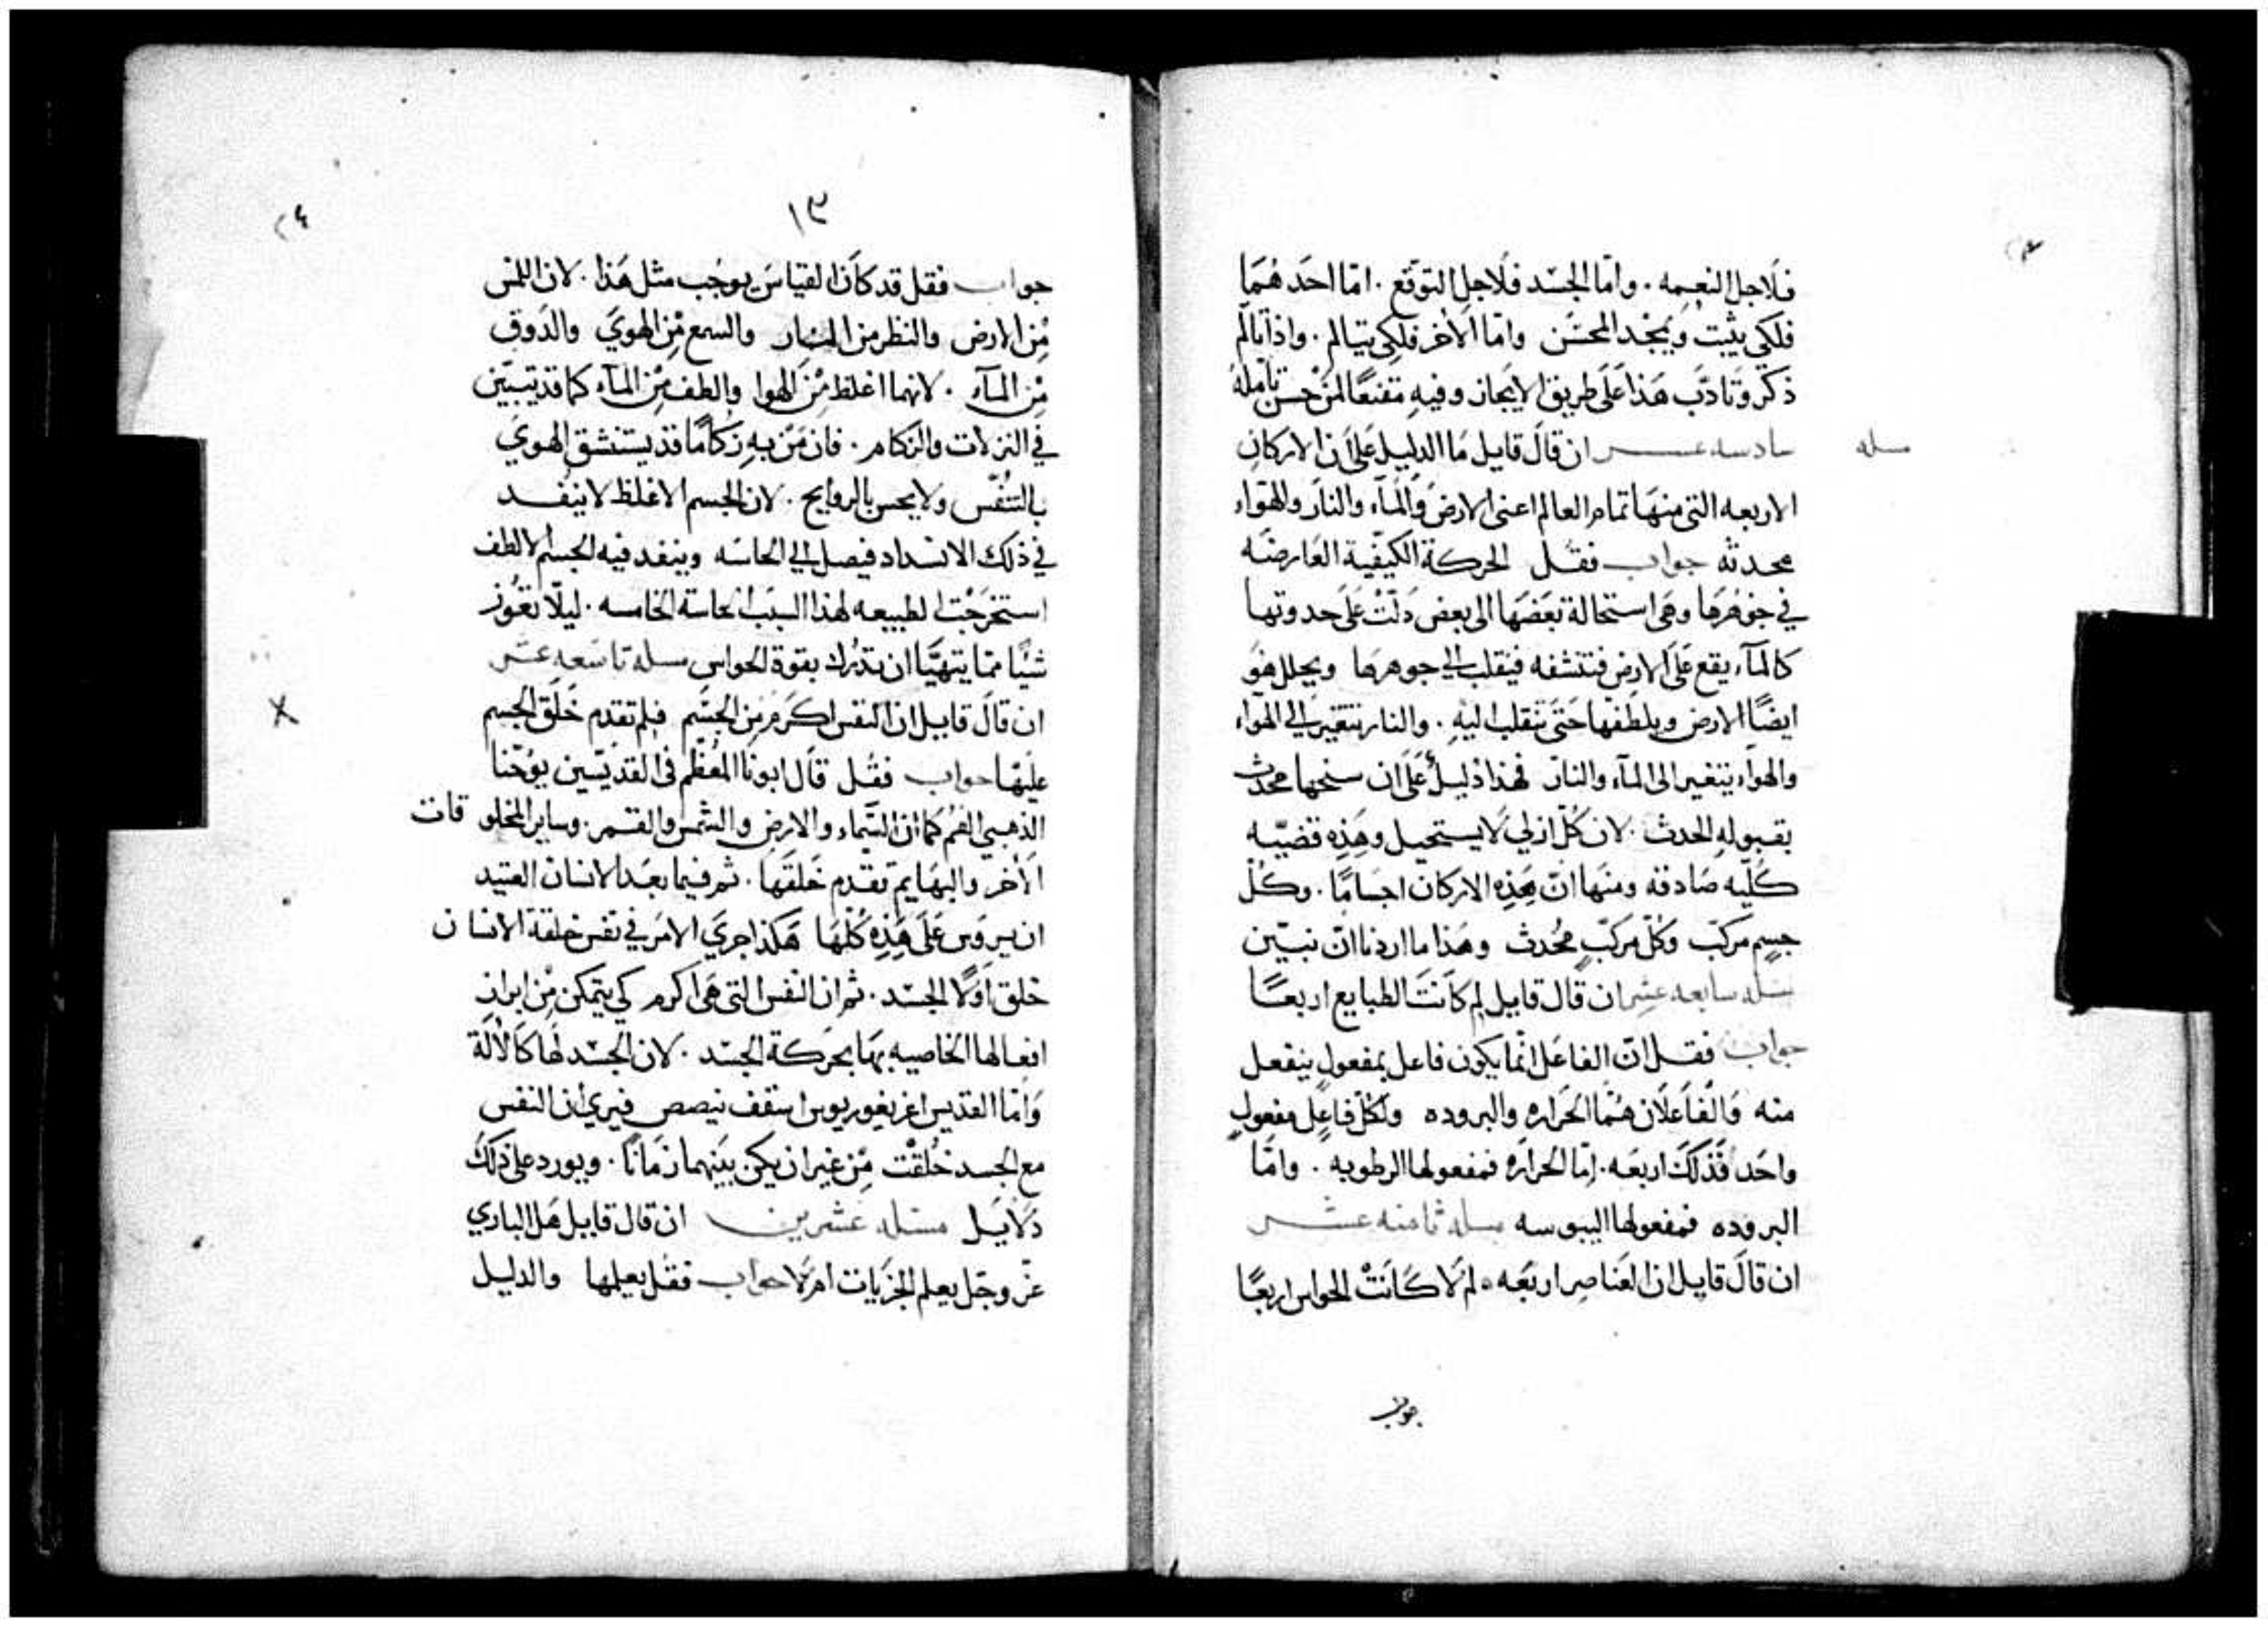 فلاجل النعمه . واما الجسد فلاجل التوقع . اما احدهما
فلكي يثبت ويمجد المحسن واما الاخر فلكي يتالم . واذا تالم
ذكر وتادب هذا على طريق الايجاز وفيه مقنعا لمن حسن تامله
مسله سادسه عشر ان قال قايل ما الدليل على ان الاركان
الاربعه التي منها تمام العالم اعني الارض والمآء والنار والهواء
محدثه جواب فقل الحركة الكيفية العارضه
في جوهرها وهي استحالة بعضها الى بعض دلت على حدوتها
كالمآء يقع على الارض فتنشفه فينقلب الي جوهرها ويحلل هو
ايضًا الارض ويلطفها حتى تنقلب اليه . والنار تتغير الي الهواء
والهواء يتغير الى المآء والنار فهذا دليل على ان سنحها محدث
بقبوله الحدث . لان كل ازلي لا يستحيل وهذه قضيه
كليه صادقه ومنها ان هذه الاركان اجسامًا . وكل
جسم مركب وكل مركب محدث وهذا ما اردنا ان نبين
مسله سابعه عشر ان قال قايل لم كانت الطبايع اربعًا
جواب فقل ان الفاعل انما يكون فاعل بمفعول ينفعل
منه والفاعلان هما الحراره والبروده ولكل فاعل مفعول
واحد فذلك اربعه . اما الحراره فمفعولها الرطوبه . واما
البروده فمفعولها اليبوسه مسله ثامنه عشر
ان قال قايل ان العناصر اربعه . لم لا كانت الحواس اربعًا
جواب
١٣
جواب فقل قد كان القياس يوجب مثل هذا . لان اللمس
من الارض والنظر من النار والسمع من الهوي والدوق
من المآء . لانهما اغلظ من الهوا والطف من المآء كما قد يتبين
في النزلات والزكام . فان من به زكامًا قد يستنشق الهوي
بالتنفس ولا يحس بالروايح . لان الجسم الاغلظ لا ينفد
في ذلك الانسداد فيصل الي الحاسه وينفد فيه الجسم الالطف
استخرجت الطبيعه لهذا السبب الحاسة الخامسه . ليلا تعوز
شيًا مما يتهيا ان تدرك بقوة الحواس مسله تاسعه عشر
ان قال قايل ان النفس اكرم من الجسم فلم تقدم خلق الجسم
عليها جواب فقل قال ابونا المعظم في القديسين يوحنا
الذهبي الفم كما ان السماء والارض والشمس والقمر . وساير المخلوقات
الاخر والبهايم تقدم خلقها . ثم فيما بعد الانسان العتيد
ان يرؤس على هذه كلها هكذا جري الامر في نفس خلقة الانسان
خلق اولا الجسد . ثم ان النفس التي هي اكرم كي يتمكن من ابراز
افعالها الخاصيه بها بحركة الجسد . لان الجسد لها كالالة
واما القديس اغريغوريوس اسقف نيصص فيري ان النفس
مع الجسد خلقت من غير ان يكن بينهما زمانًا . ويورد على ذلك
دلايل مسله عشرين ان قال قايل هل الباري
عز وجل يعلم الجزيات ام لا جواب فقل يعلمها والدليل